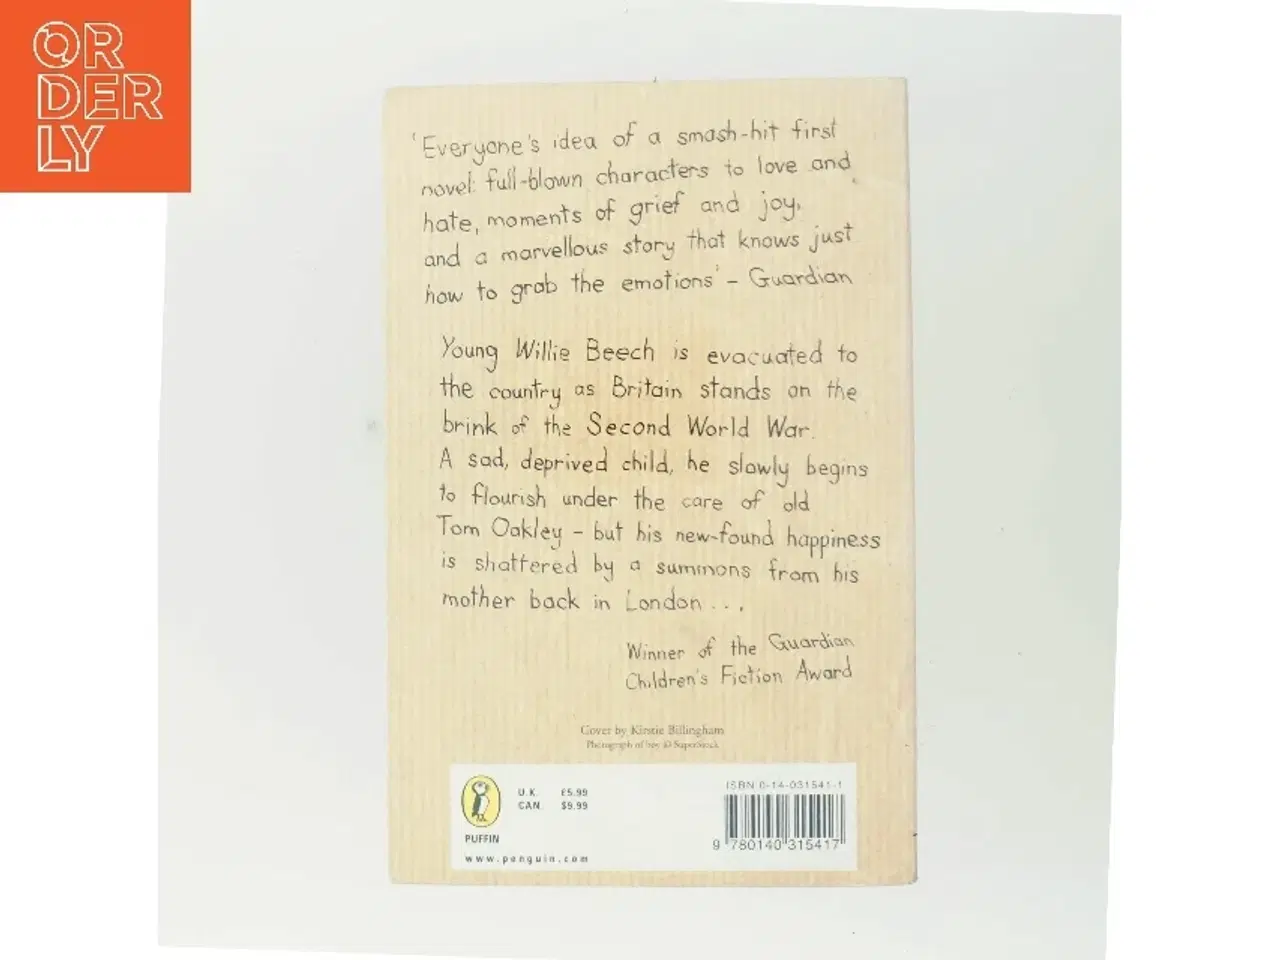 OR
DER
LY
'Everyone's idea of a smash-hit first
novel: full-blown characters to love and
hate, moments of grief and joy,
and a marvellous story that knows just
how to grab the emotions' – Guardian
Young Willie Beech is evacuated to
the country as Britain stands on the
brink of the Second World War.
A sad, deprived child, he slowly begins
to flourish under the care of old
Tom Oakley – but his new-found happiness
is shattered by a summons from his
mother back in London ...
Winner of the Guardian
Children's Fiction Award
Cover by Kirstie Billingham
Photograph of boy © Superstock
U.K. £5.99
CAN. $9.99
PUFFIN
www.penguin.com
ISBN 0-14-031541-1
9 780140 315417